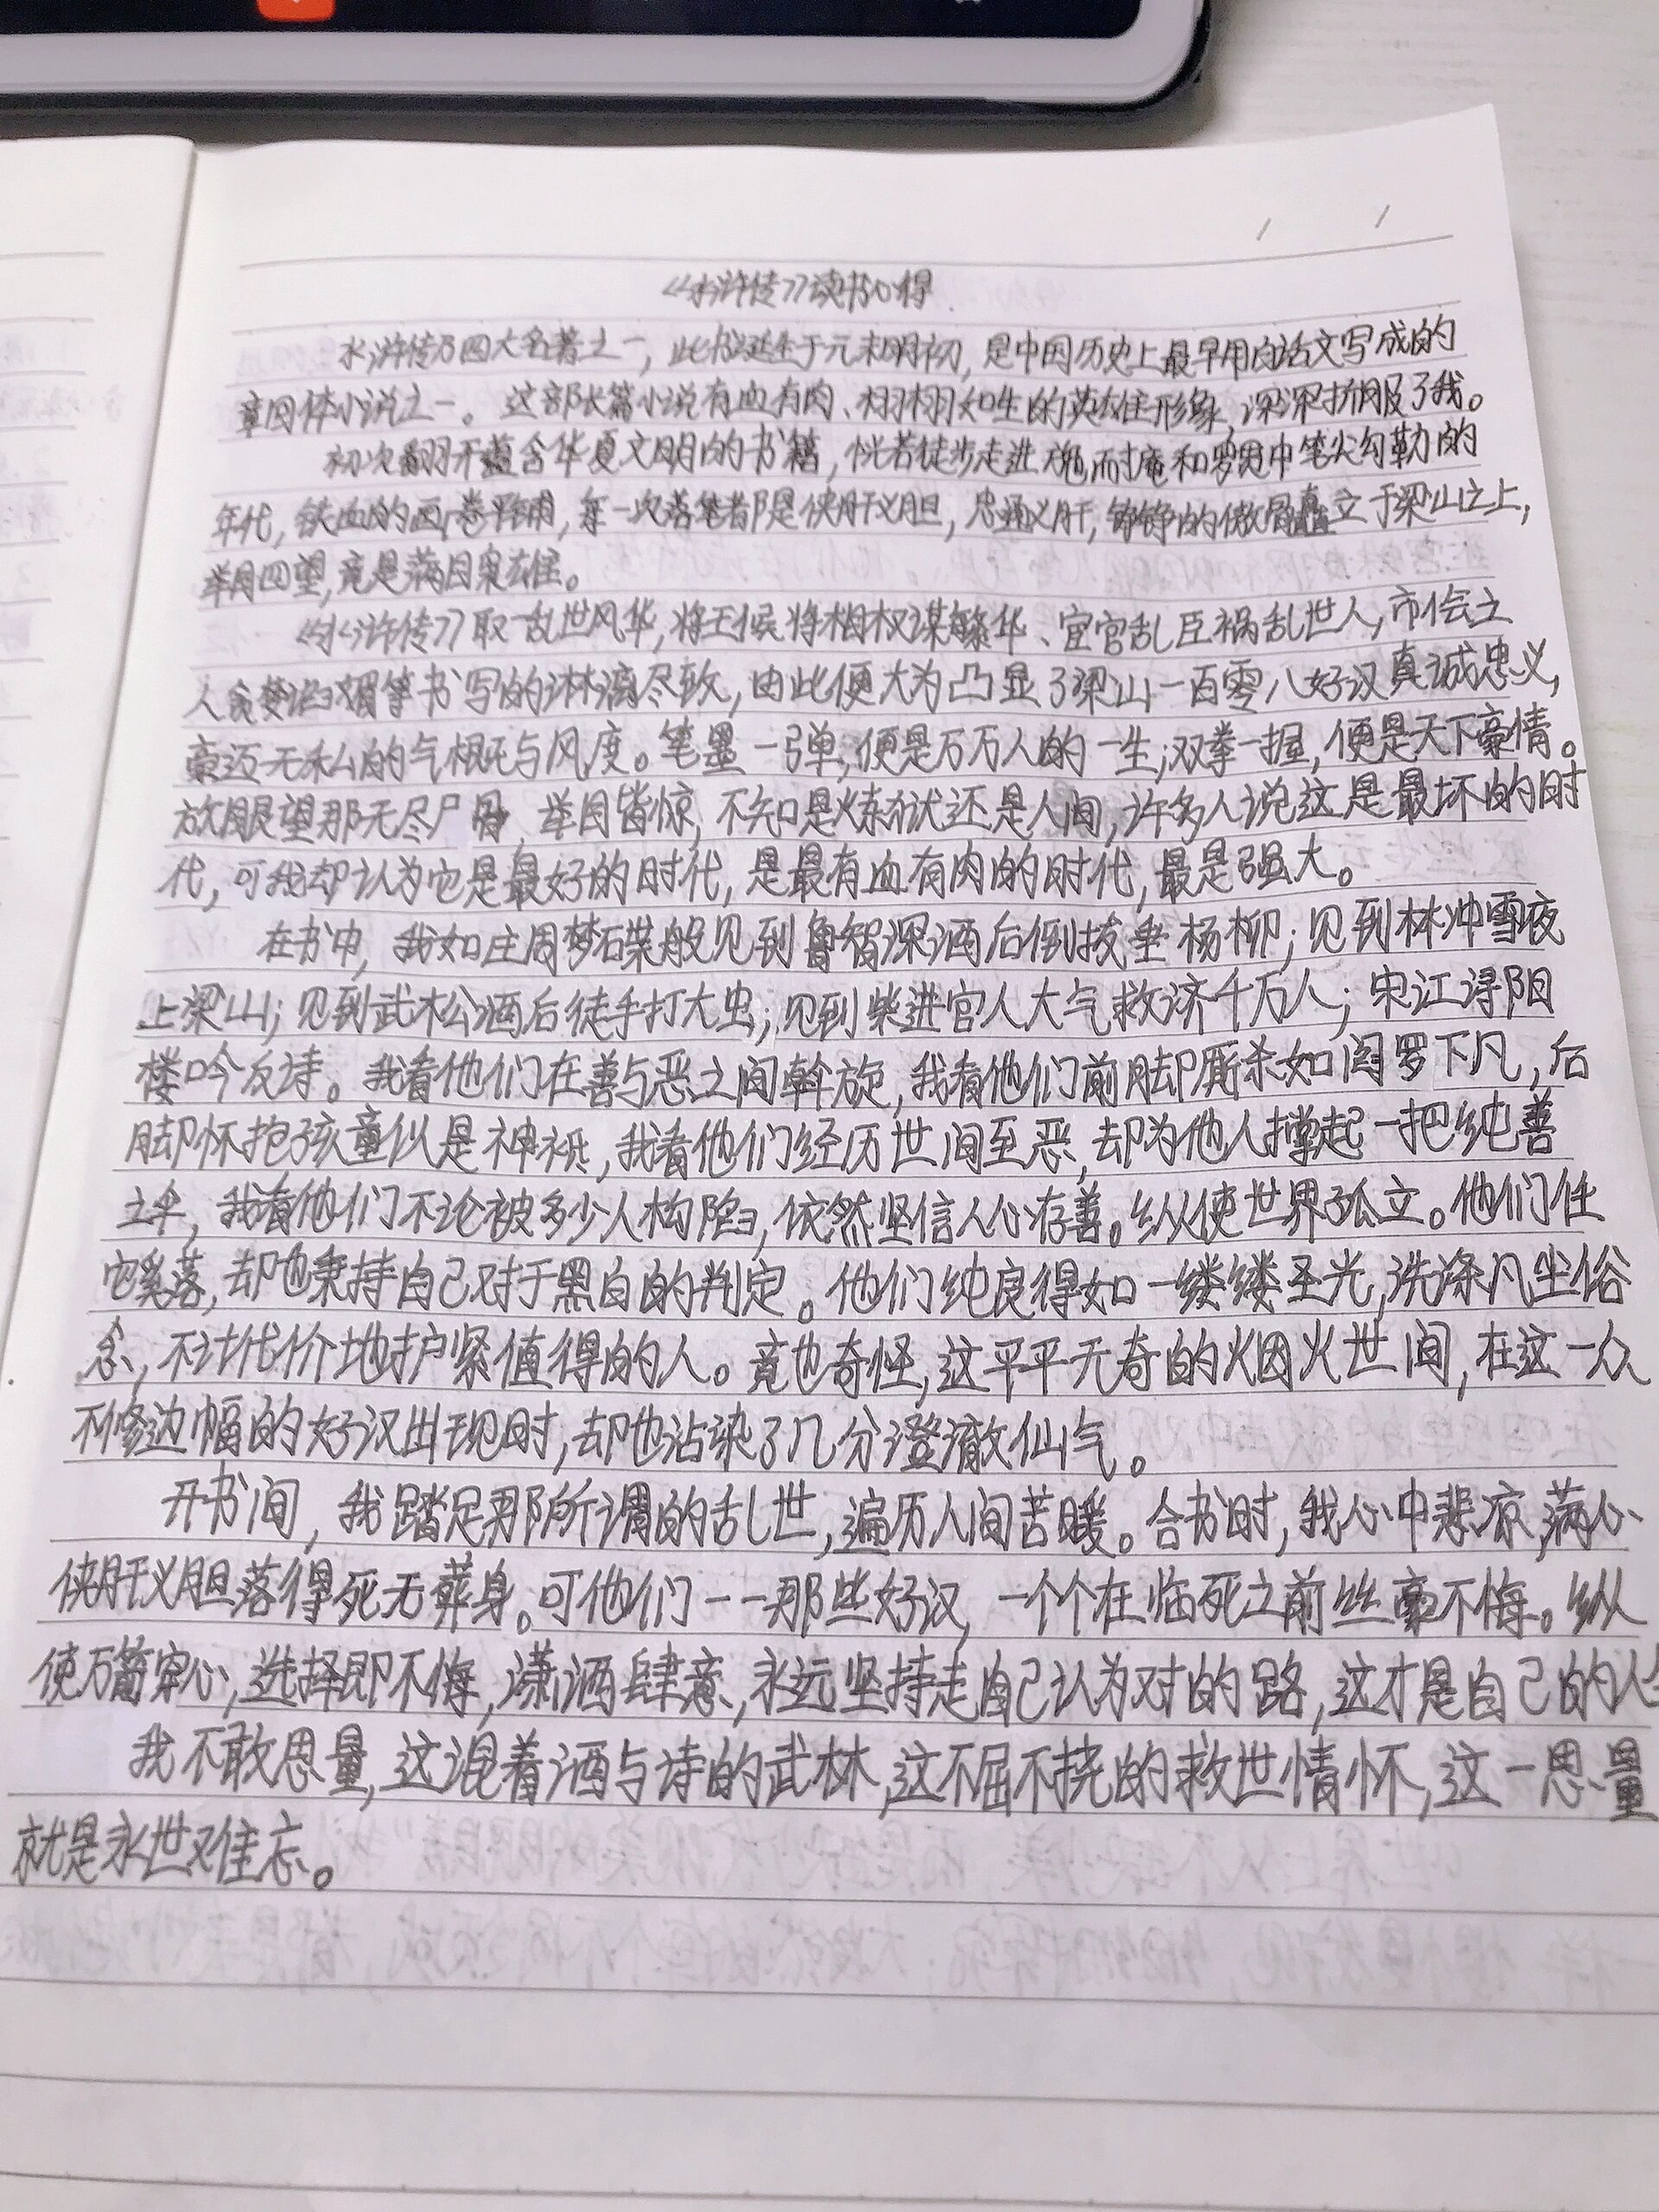 《水浒传》读书心得
水浒传乃四大名著之一，此书诞生于元末明初，是中国历史上最早用白话文写成的
章回体小说之一。这部长篇小说有血有肉、栩栩如生的英雄形象，深深折服了我。
初次翻开蕴含华夏文明的书籍，恍若徒步走进施耐庵和罗贯中笔尖勾勒的
年代，铁血的画卷平铺，每一次落笔都是侠肝义胆，忠通义肝，铮铮的傲骨矗立于梁山之上，
举目四望，竟是满目枭雄。
《水浒传》取乱世风华，将王候将相权谋繁华、宦官乱臣祸乱世人，市侩之
人贪婪谄媚等书写的淋漓尽致，由此便大为凸显了梁山一百零八好汉真诚忠义，
豪迈无私的气概与风度。笔墨一弹，便是万万人的一生；双拳一握，便是天下豪情。
放眼望那无尽尸骨 举目皆惊，不知是炼狱还是人间，许多人说这是最坏的时
代，可我却认为它是最好的时代，是最有血有肉的时代，最是强大。
在书中，我如庄周梦碟般见到鲁智深酒后倒拔垂杨柳；见到林冲雪夜
上梁山；见到武松酒后徒手打大虫；见到柴进官人大气救济千万人；宋江浔阳
楼吟反诗。我看他们在善与恶之间斡旋，我看他们前脚厮杀如阎罗下凡，后
脚怀抱孩童似是神祇，我看他们经历世间至恶，却为他人撑起一把纯善
之伞，我看他们不论被多少人构陷，依然坚信人心存善。纵使世界孤立。他们任
它奚落，却也秉持自己对于黑白的判定。他们纯良得如一缕缕圣光，洗涤凡尘俗
念，不计代价地护紧值得的人。竟也奇怪，这平平无奇的烟火世间，在这一众
不修边幅的好汉出现时，却也沾染了几分澄澈仙气。
开书间，我踏足那所谓的乱世，遍历人间苦暖。合书时，我心中悲凉，满心
侠肝义胆落得死无葬身。可他们——那些好汉，一个个在临死之前丝毫不悔。纵
使万箭穿心，选择即不悔，潇洒肆意，永远坚持走自己认为对的路，这才是自己的人
我不敢思量，这混着酒与诗的武林，这不屈不挠的救世情怀，这一思量
就是永世难忘。